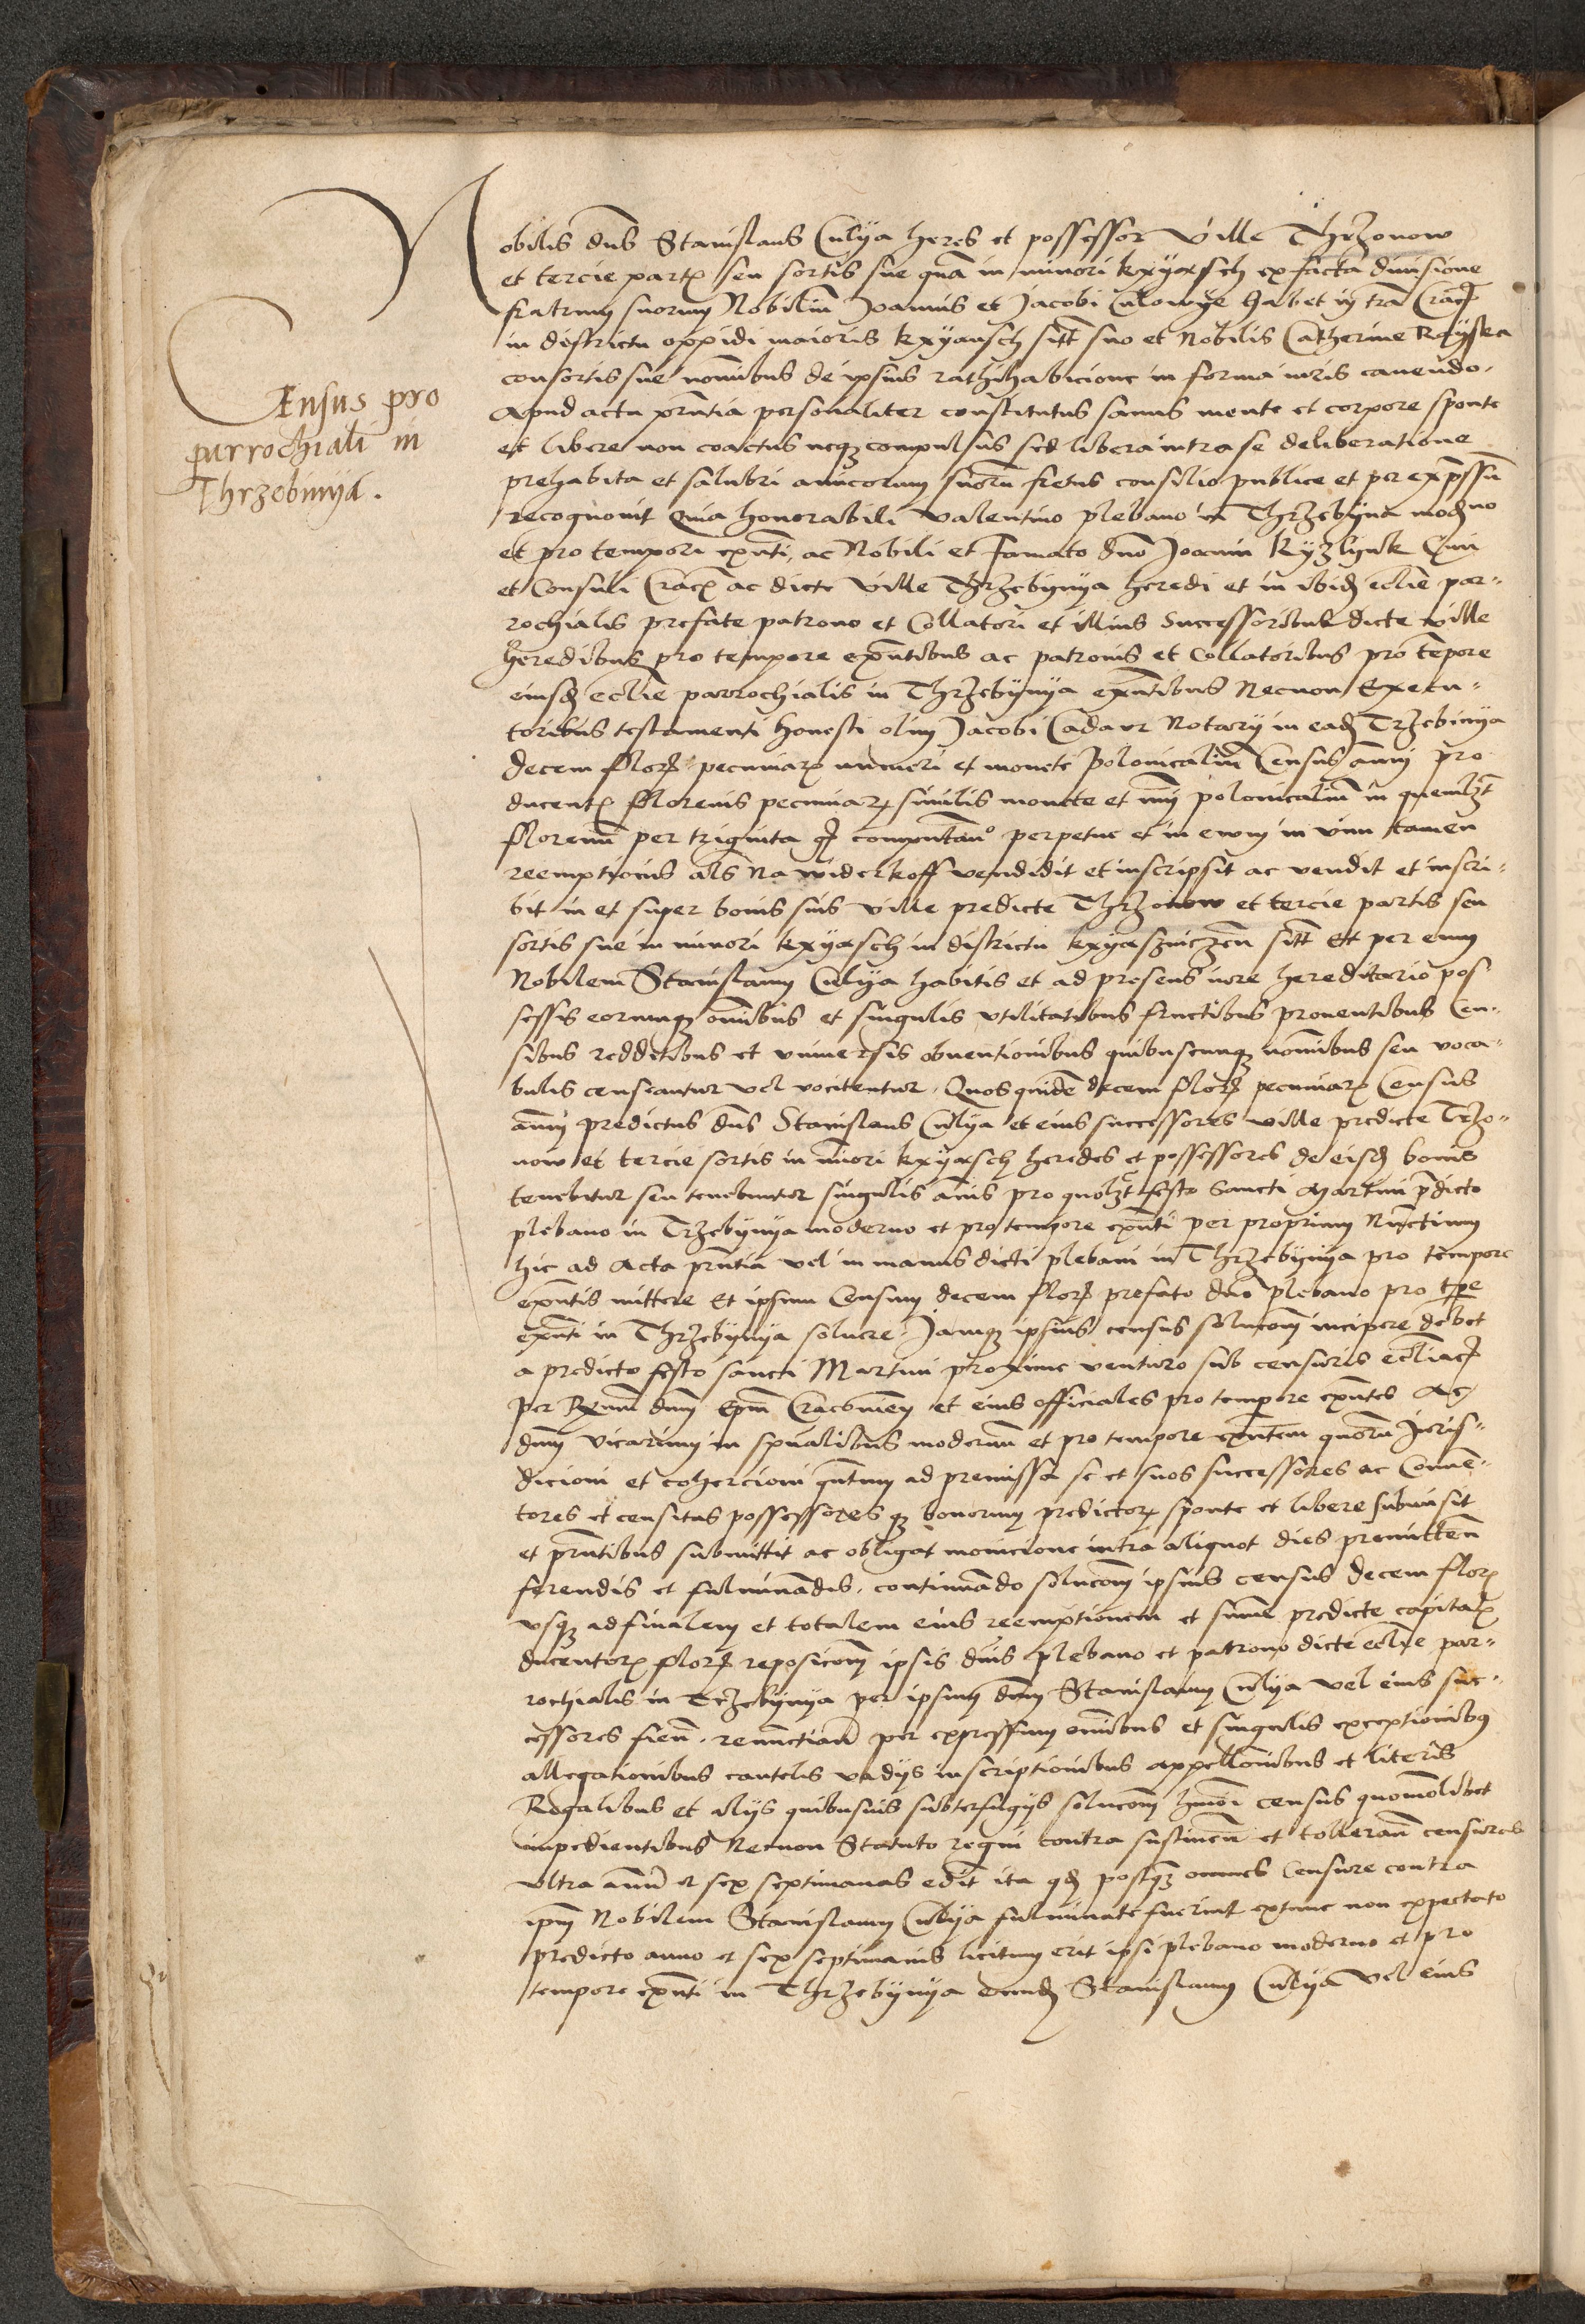 Census pro
parrochiali in
Thrzebinya.
Nobilis dns Stanislaus Culya heres et possessor ville Thrzonow
et tercie partis seu sortis sue quam in minori kxyansch ex facta diuisione
fratrum suorum Nobilium Joannis et Jacobi Culowye habet in tra Crac
in districtu oppidi maioris kxyansch sitt suo et Nobilis Catherine
consortis sue nominibus de ipsius rathihabicione in forma iuris cauendo.
Apud acta prntia personaliter constitutus sanus mente et corpore sponte
et libere non coactus neq compulsus sed libera intra se deliberatione
prehabita et salubri amicorum suorum fretus consilio publice et per expssum
recognouit Quia honorabili Valentino plebano in Thrzebyna moderno
et pro tempori exnti, ac Nobili et Famato dno Joanni Kyzlynk Ciui
et Consuli Crac ac dicte ville Thrzebynya heredi et in ibid ecclie par-
rochialis prefate patrono et Collatori et illius Successoribus dicte ville
heredibus pro tempore exntibus ac patronis et Collatoribus pro tempore
eiusd ecclie parrochialis in Thrzebynya exntibus Necnon Execu-
toribus testamenti honesti olim Jacobi Notarij in ead Trzebinya
decem flor pecuniar numeri et monete Polonicalium Census annui pro
ducentis Florenis pecuniar similis monete et nui polonicalium in quemlzt
florenum per triginta gr computando perpetue et in ewum in vim tamen
reemptionis als Na widerkoff vendidit et inscripsit ac vendit et inscri-
bit in et super bonis suis ville predicte Thrzonow et tercie partis seu
sortis sue in minori kxyansch in districtu sitt Et per eum
Nobilem Stanislaum Culya habitis et ad presens iure hereditario pos
sessis eorumq omnibus et singulis vtilitatibus fructibus prouentibus Cen-
sibus redditibus et vniuersis obuentionibus quibuscunq nominibus seu voca-
bulis censeantur vel vocitentur. Quos quidem decem flor pecuniar Census
annui predictus dns Stanislaus Culya et eius successores ville predicte Trzo-
now et tercie sortis in minori kxyansch heredes et possessores de eisd bonis
tenebitur seu tenebuntur singulis annis pro quolzt festo Sancti Martini predicto
plebano in Trzebynya moderno et pro tempore exnti per proprium Nunctium
hic ad Acta prntia vel in manus dicti plebani in Thrzebynya pro tempore
exntis mittere Et ipsum Censum decem flor prefato dno plebano pro tpre
exnti in Thrzebynya soluere. Jamq ipsius census solucom incipere debet
a predicto festo sancti Martini proxime venturo sub censuris eccliacis
per Rxmum dnum Epm Cracouien et eius officiales pro tempore exntes Ac
dnum vicarium in spualibus modernum et pro tempore exntem quorum Juris-
dicioni et cohercioni quantum ad premissa se et suos successores ac
tores et censitas possessores q bonorum predictor sponte et libere submisit
et prntibus submittit ac obligat monicione intra aliquot dies premitten
ferendis et fulminandis. continuando solucom ipsius census decem flor
vsq ad finalem et totalem eius reemptionem et summe predicte capitalis
ducentor flor reposicom ipsis dnis plebano et patrono dicte ecclie par-
rochialis in Trzebynya per ipsum dnum Stanislaum Culya vel eius suc-
cessores fien. renunctiando per expressum omnibus et singulis exceptionibus
allegationibus cautelis vadijs inscriptionibus appellonibus et literis
Regalibus et alijs quibusuis subterfugijs solucom hmoi census quomolibet
impedientibus Necnon Statuto regni contra sustinen et tolleran censuras
vltra annum et sex septimanas edit ita qd postq omnes Censure contra
ipm Nobilem Stanislaum Culya fulminate fuerint extunc non expectato
predicto anno et sex septimanis licitum erit ipsi plebano moderno et pro
tempore exnti in Thrzebynya eund Stanislaum Culya vel eius